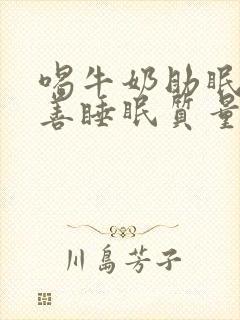 喝牛奶助眠
善睡眠質量
川島芳子